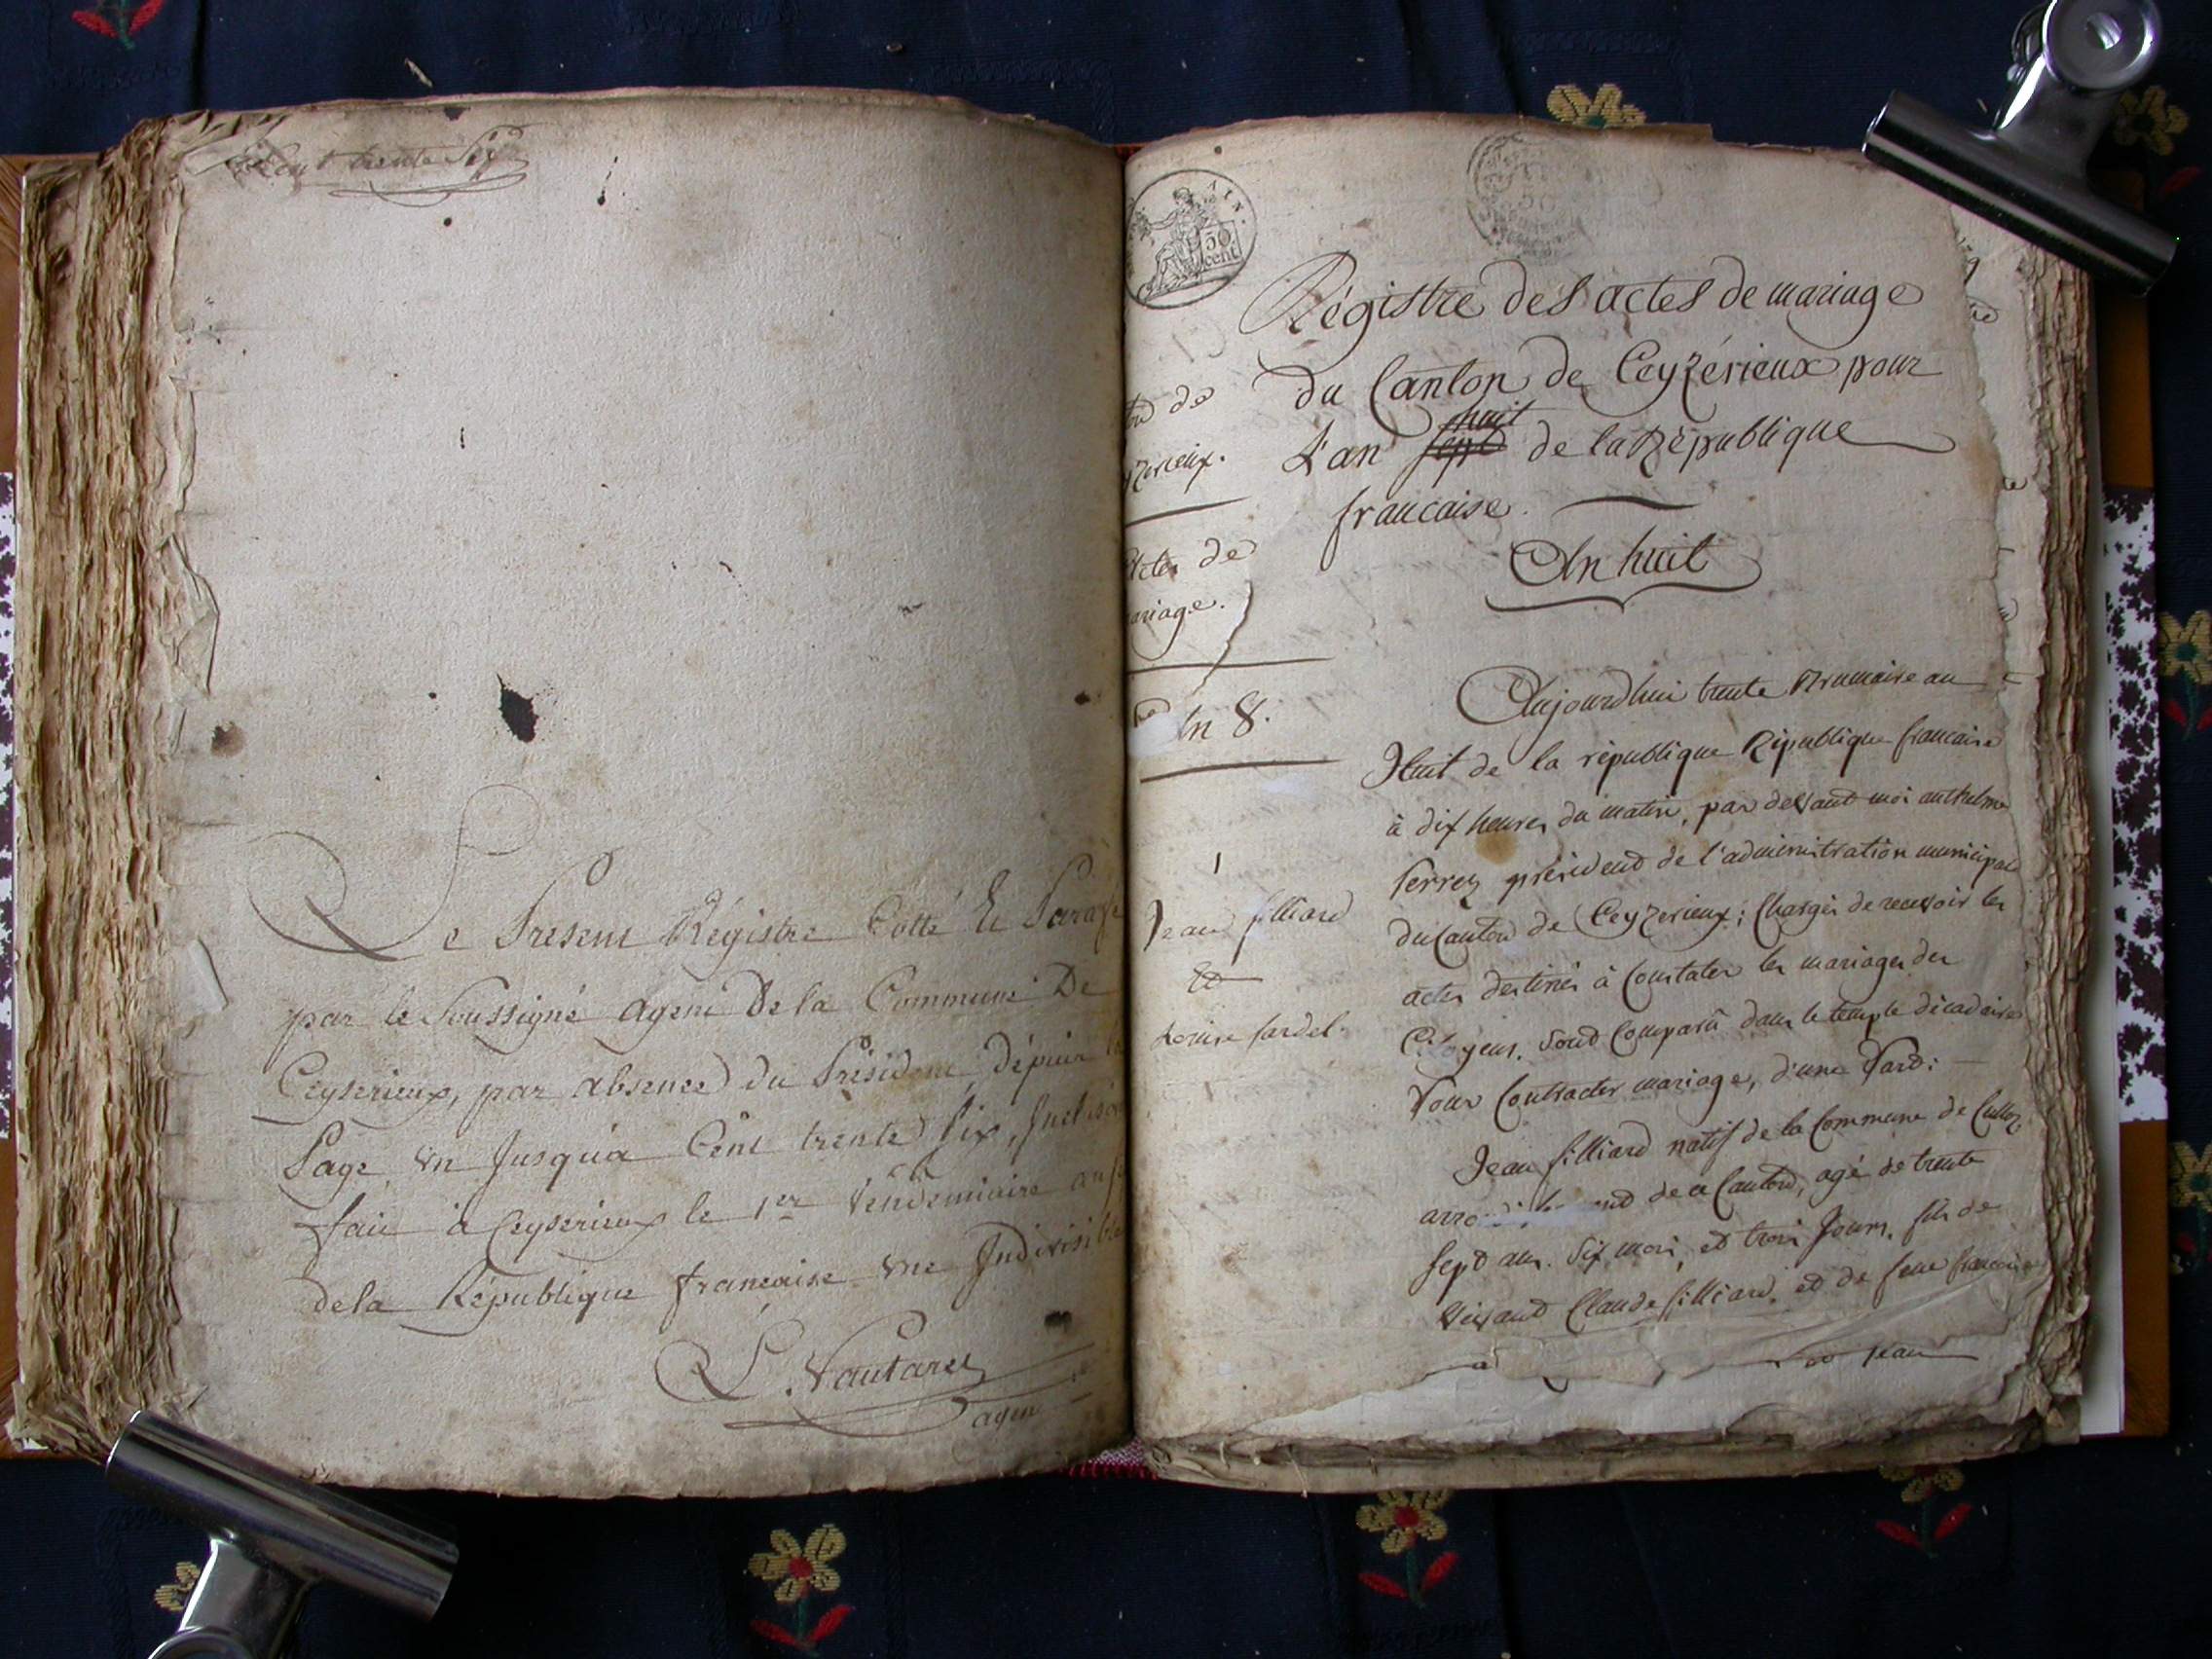 Cent trente Six
Le Present Régistre Cotté Et Paraf
par le Soussigné agent De la Commune De
Ceyserieux, par absence du Président, dépuis la
Page un Jusqu'à Cent trente Six, Inclusiv
fait à Ceyserieux le 1er Vendemiaire an
de la République francaise une Indivisible
P. Vautaret
agent
AIN.
50
cent
Régistre des actes de mariage
du Canton de Ceyzérieux pour
huit
L'an sept de la République
francaise.
An huit
de
yzerieux.
Actes de
ariage.
An 8.
1
Jean filliard
&
Louise Jardel.
Aujourdhui trente Brumaire an
Huit de la république République francaise
à dix heures du matin, par devant moi anthelme
ferrez président de l'administration municipal
du Canton de Ceyzerieux; Chargés de recevoir les
actes destinés à Constater les mariages des
Citoyens. sont Comparû dans le temple décadaire
Pour Contracter mariage, d'une Part:
Jean filliard natif de la Commune de Culloz
de ce Canton, agé de trente
sept ans. Six mois, et trois Jours, fils de
vivant Claude filliard, et de feue francoise
Jean